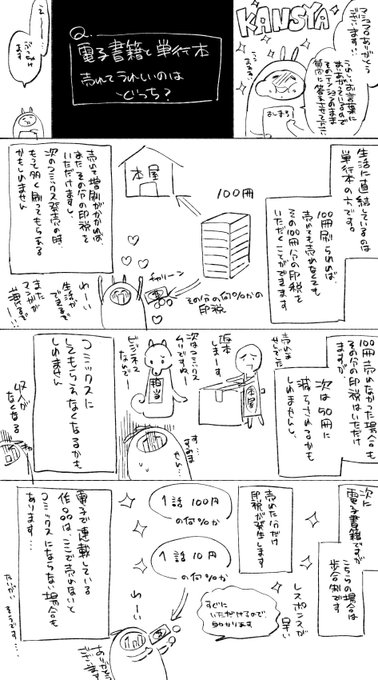 KANSYA
マシュマロありがとう
ございます!!
Q.
電子書籍と単行本
売れてうれしいのは
どっち?
生活に直結しているのは
単行本の方です。
100冊刷られれば
売れても売れなくても
その100冊分の印税を
いただくことができます
100冊
本屋
その分の何%かの
印税
チャリーン
売れて増刷がかかれば
またその分の印税を
いただけますし
次のコミックス発売の時
もっと多く刷ってもらえる
かもしれません
わーい
生活が
できるぞ
また
マンガが
100冊売れなかった場合も
その分の印税はいただけ
ますが
次は50冊に
減らされるかも
しれませんし、
売れま
せんでした
返本
しまーす
本屋
次はコミックス
ムリですねー
ビジネス
なんでー
担当
すみま
せん…
コミックスに
してもらえなくなるかも
しれません
収入が
なくなる
次に
電子書籍ですが
こちらの場合は
歩合制です
レスポンスが
早い
売れた分だけ
印税が発生します
すぐに
いただけるので
助かります
1話 100円
の何%か
1話 10円
の何%か
わーい
電子で連載している
作品はここで売れないと
コミックスにならない場合も
あります…
ありがとう
ございます